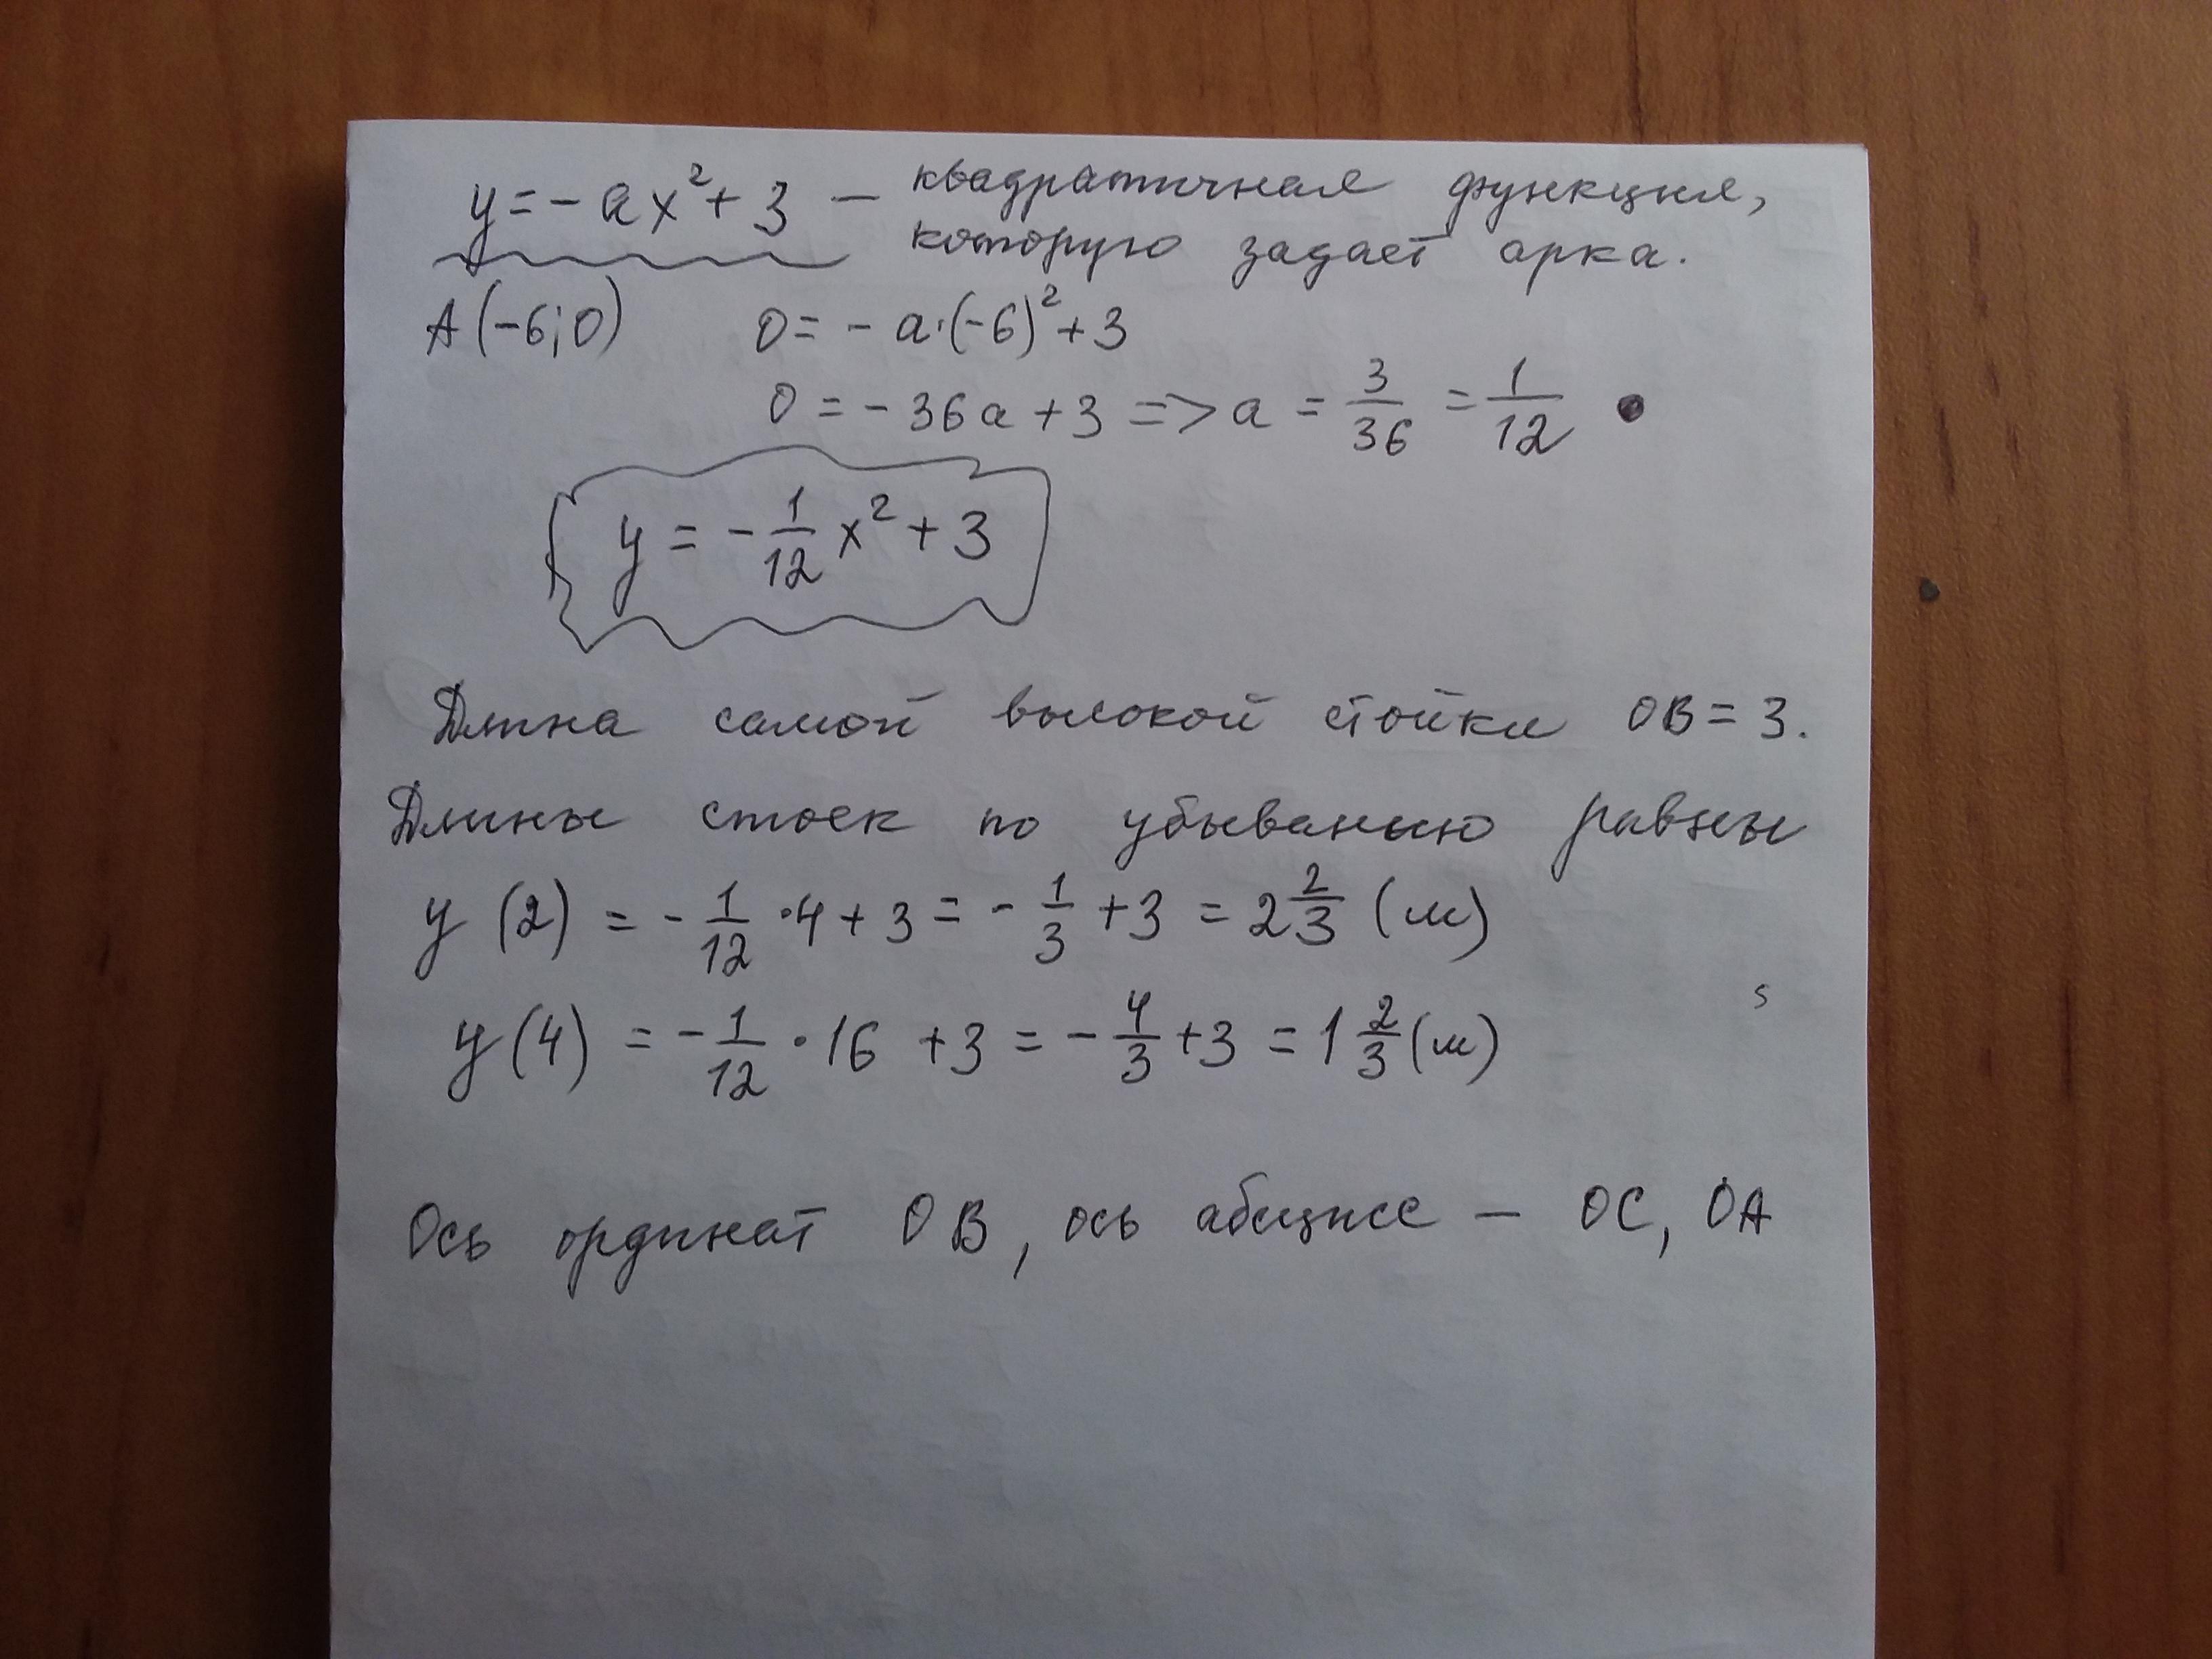 y = - ax² + 3 — квадратичная функция,
которую задает арка.
A (-6; 0) 0 = - a·(-6)² + 3
0 = - 36a + 3 => a = 3/36 = 1/12
y = - 1/12 x² + 3
Длина самой высокой стойки OB = 3.
Длины стоек по убыванию равны
y (2) = - 1/12 · 4 + 3 = - 1/3 + 3 = 2 2/3 (м)
y (4) = - 1/12 · 16 + 3 = - 4/3 + 3 = 1 2/3 (м)
Ось ординат OB, ось абсцисс — OC, OA